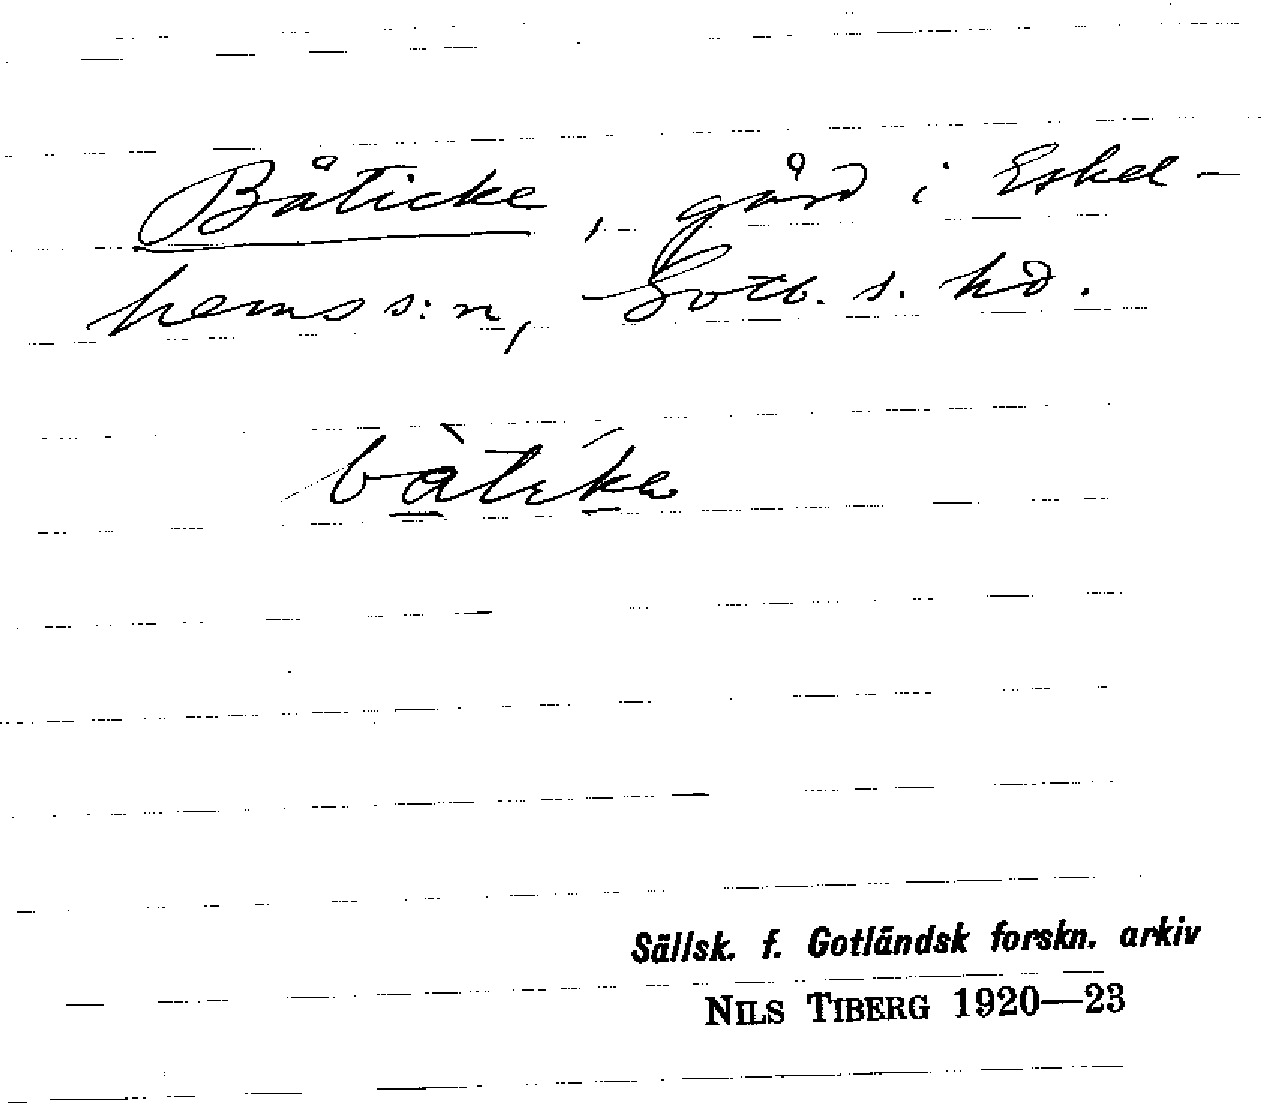 Båticke, gård i Eskel-
hems s:n, Gotl. s. hd.
bàtika
Sällsk. f. Gotländsk forskn. arkiv
NILS TIBERG 1920—23